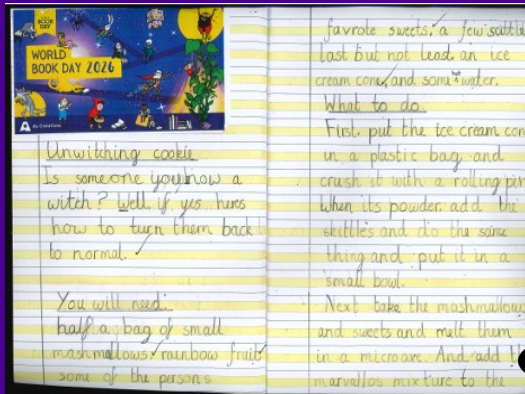 BOOK
DAY
WORLD
BOOK DAY 2026
Unwitching cookie
Is someone you know a
witch? Well if yes heres
how to turn them back
to normal.
You will need:
half a bag of small
mashmellows, rainbow fruit
some of the persons
favrote sweets, a few scittle
last but not least, an ice
cream cone, and some hot water.
What to do.
First, put the ice cream con
in a plastic bag and
crush it with a rolling pin
When its powder, add the
skittles and do the same
thing and put it in a
small bowl.
Next take the mashmallow
and sweets and melt them
in a microare. And add t
marvallos mixture to the